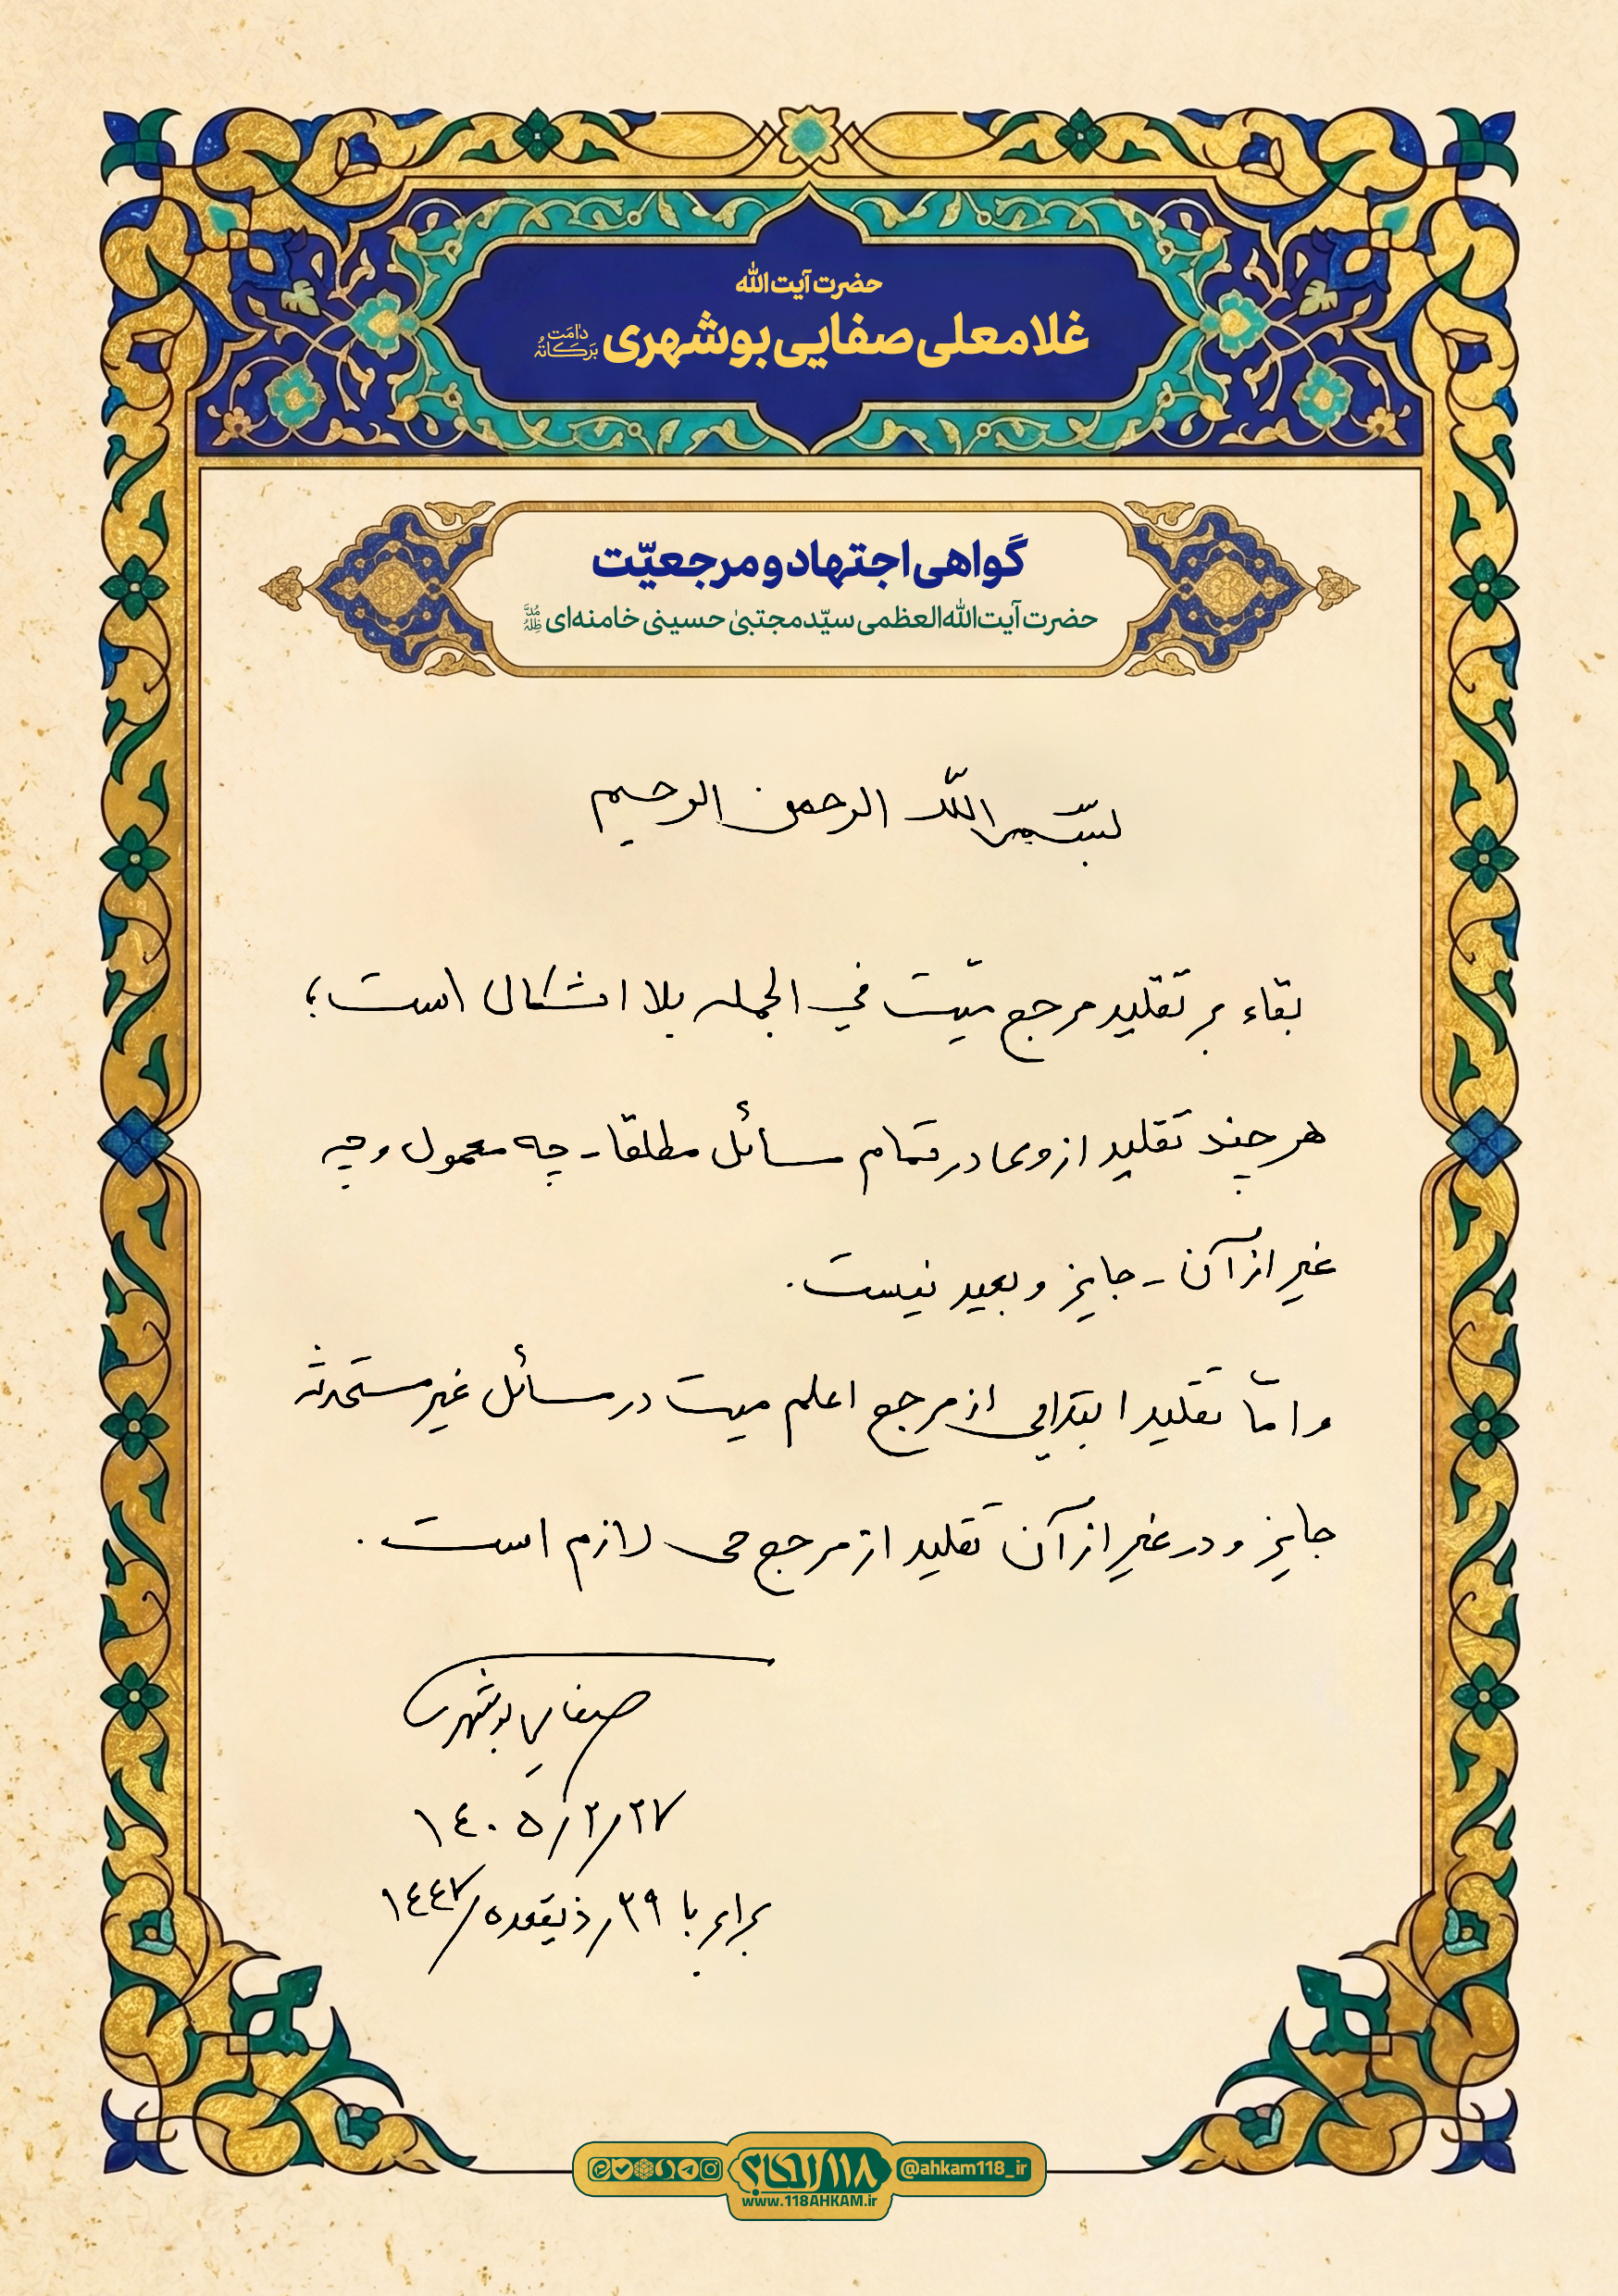 حضرت آیت‌الله
غلامعلی صفایی بوشهری دامَت بَرَکاتُهُ
گواهی اجتهاد و مرجعیّت
حضرت آیت‌الله‌العظمی سیّد مجتبیٰ حسینی خامنه‌ای مُدَّ ظِلُّهُ
بسم الله الرحمن الرحیم
بقاء بر تقلید مرجع میّت في الجمله بلا اشکال است؛
هر چند تقلید از وی در تمام مسائل مطلقا - چه معمول و چه
غیر از آن - جایز و بعید نیست.
و امّا تقلید ابتدایی از مرجع اعلم میت در مسائل غیر مستحدثه
جایز و در غیر از آن تقلید از مرجع حی لازم است.
صفایی بوشهری
۱۴۰۵/۲/۲۷
برابر با ۲۹/ذیقعده/۱۴۴۷
احکام ۱۱۸
@ahkam118_ir
www.118AHKAM.ir